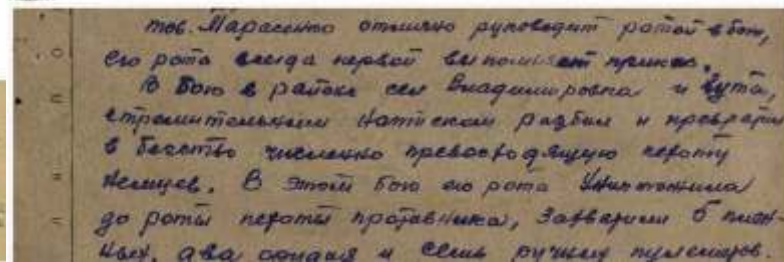 тов. Марасенко отлично руководит ротой в бою,
его рота всегда первой выполняет приказ.
В бою в районе сел Владимировка и Бута,
стремительным натиском разбил и превратил
в бегство численно превосходящую пехоту
немцев. В этом бою его рота уничтожила
до роты пехоты противника, захватили 6 плен
ных, два орудия и семь ручных пулеметов.